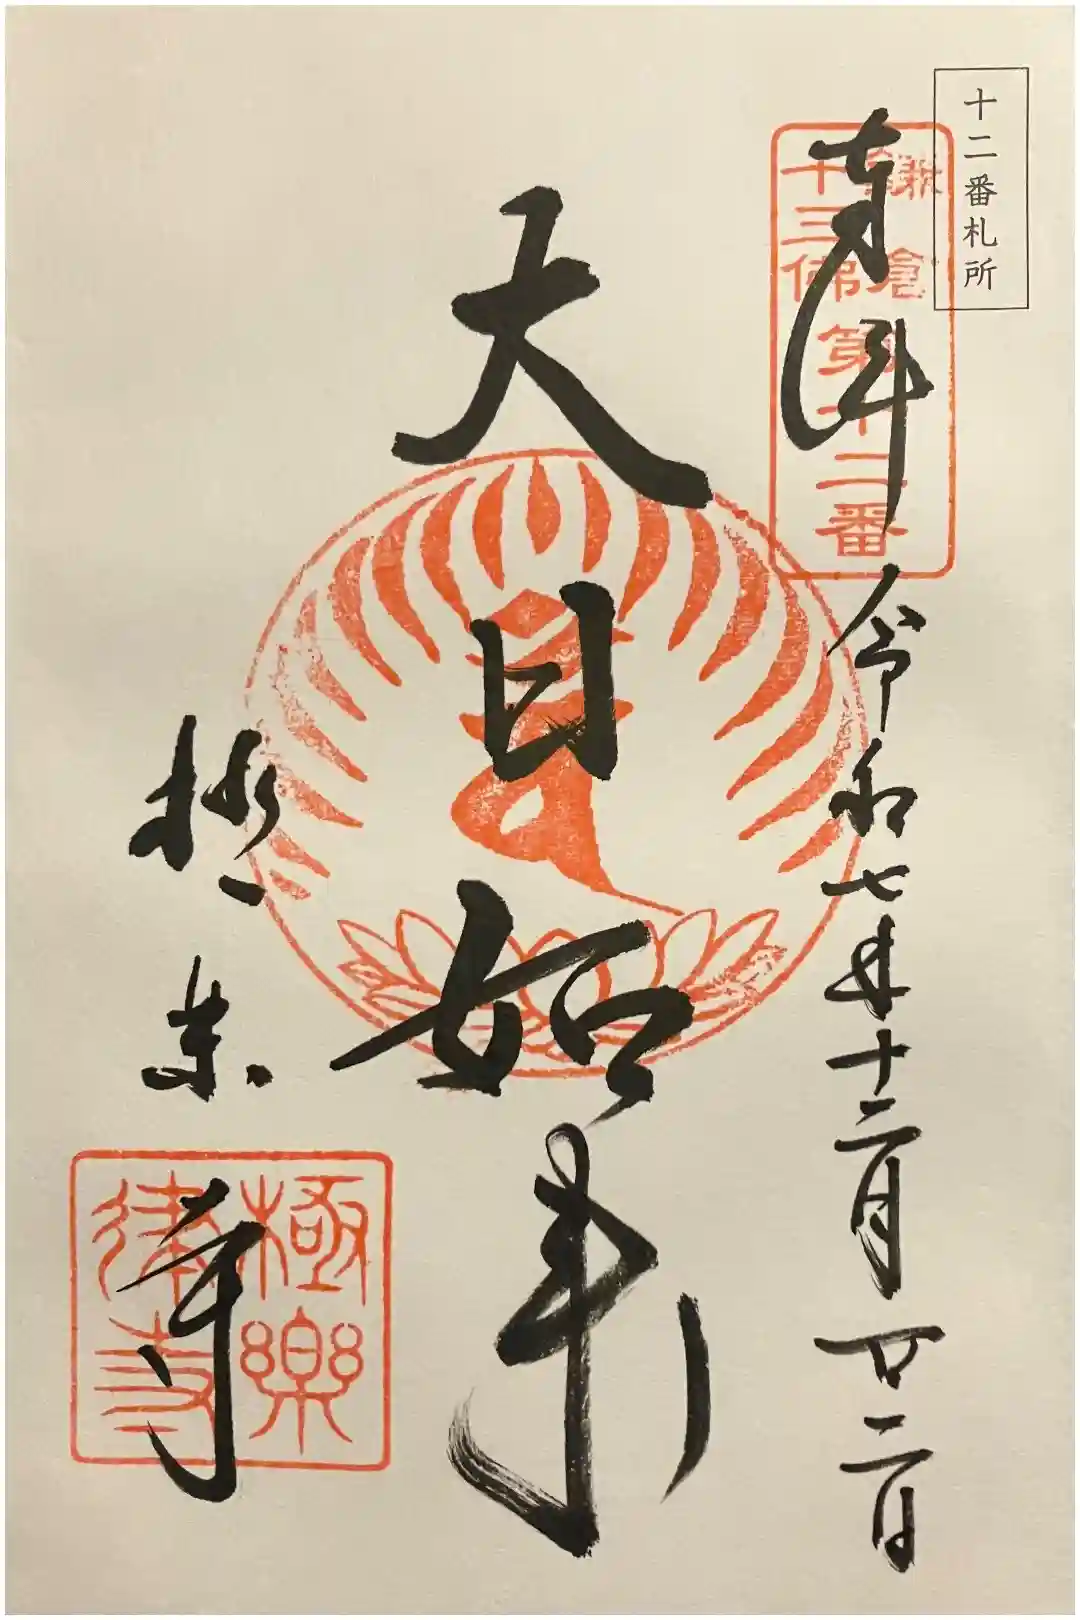 十二番札所
奉拝
鎌倉
十三佛
第十二番
令和七年十二月廿二日
大日如来
極楽寺
極樂
律寺